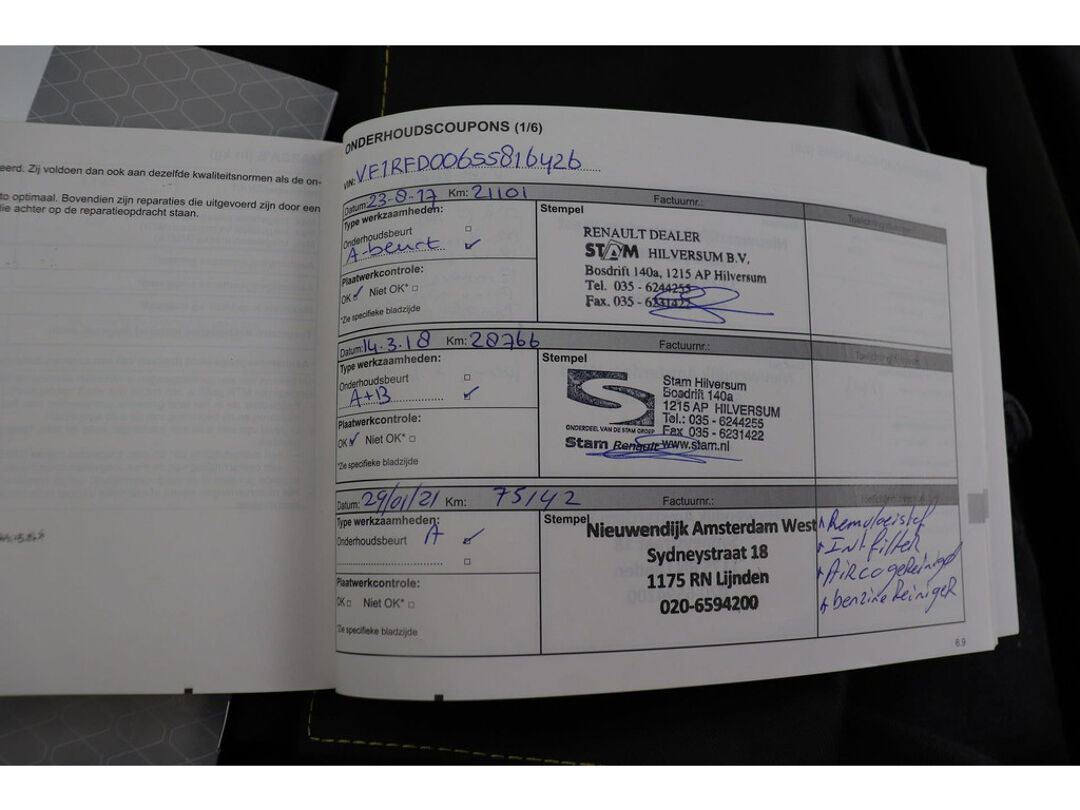 eerd. Zij voldoen dan ook aan dezelfde kwaliteitsnormen als de on-
to optimaal. Bovendien zijn reparaties die uitgevoerd zijn door een
lie achter op de reparatieopdracht staan.
ONDERHOUDSCOUPONS (1/6)
VIN: VF1RFD00655816426
Datum: 23-8-17 Km: 21101 Factuurnr.:
Type werkzaamheden:
Onderhoudsbeurt
A-beurt
Plaatwerkcontrole:
OK Niet OK*
*Zie specifieke bladzijde
Stempel
RENAULT DEALER
STAM HILVERSUM B.V.
Bosdrift 140a, 1215 AP Hilversum
Tel. 035 - 6244255
Fax. 035 - 6231422
Datum: 14.3.18 Km: 28766 Factuurnr.:
Type werkzaamheden:
Onderhoudsbeurt
A+B
Plaatwerkcontrole:
OK Niet OK*
*Zie specifieke bladzijde
Stempel
Stam Hilversum
Bosdrift 140a
1215 AP HILVERSUM
Tel.: 035 - 6244255
Fax 035 - 6231422
www.stam.nl
ONDERDEEL VAN DE STAM GROEP
Stam Renault
Datum: 29/01/21 Km: 75142 Factuurnr.:
Type werkzaamheden:
Onderhoudsbeurt A
Plaatwerkcontrole:
OK Niet OK*
*Zie specifieke bladzijde
Stempel
Nieuwendijk Amsterdam West
Sydneystraat 18
1175 RN Lijnden
020-6594200
Remvloeistof
Int filter
Airco gereinigd
benzine Reiniger
6.9